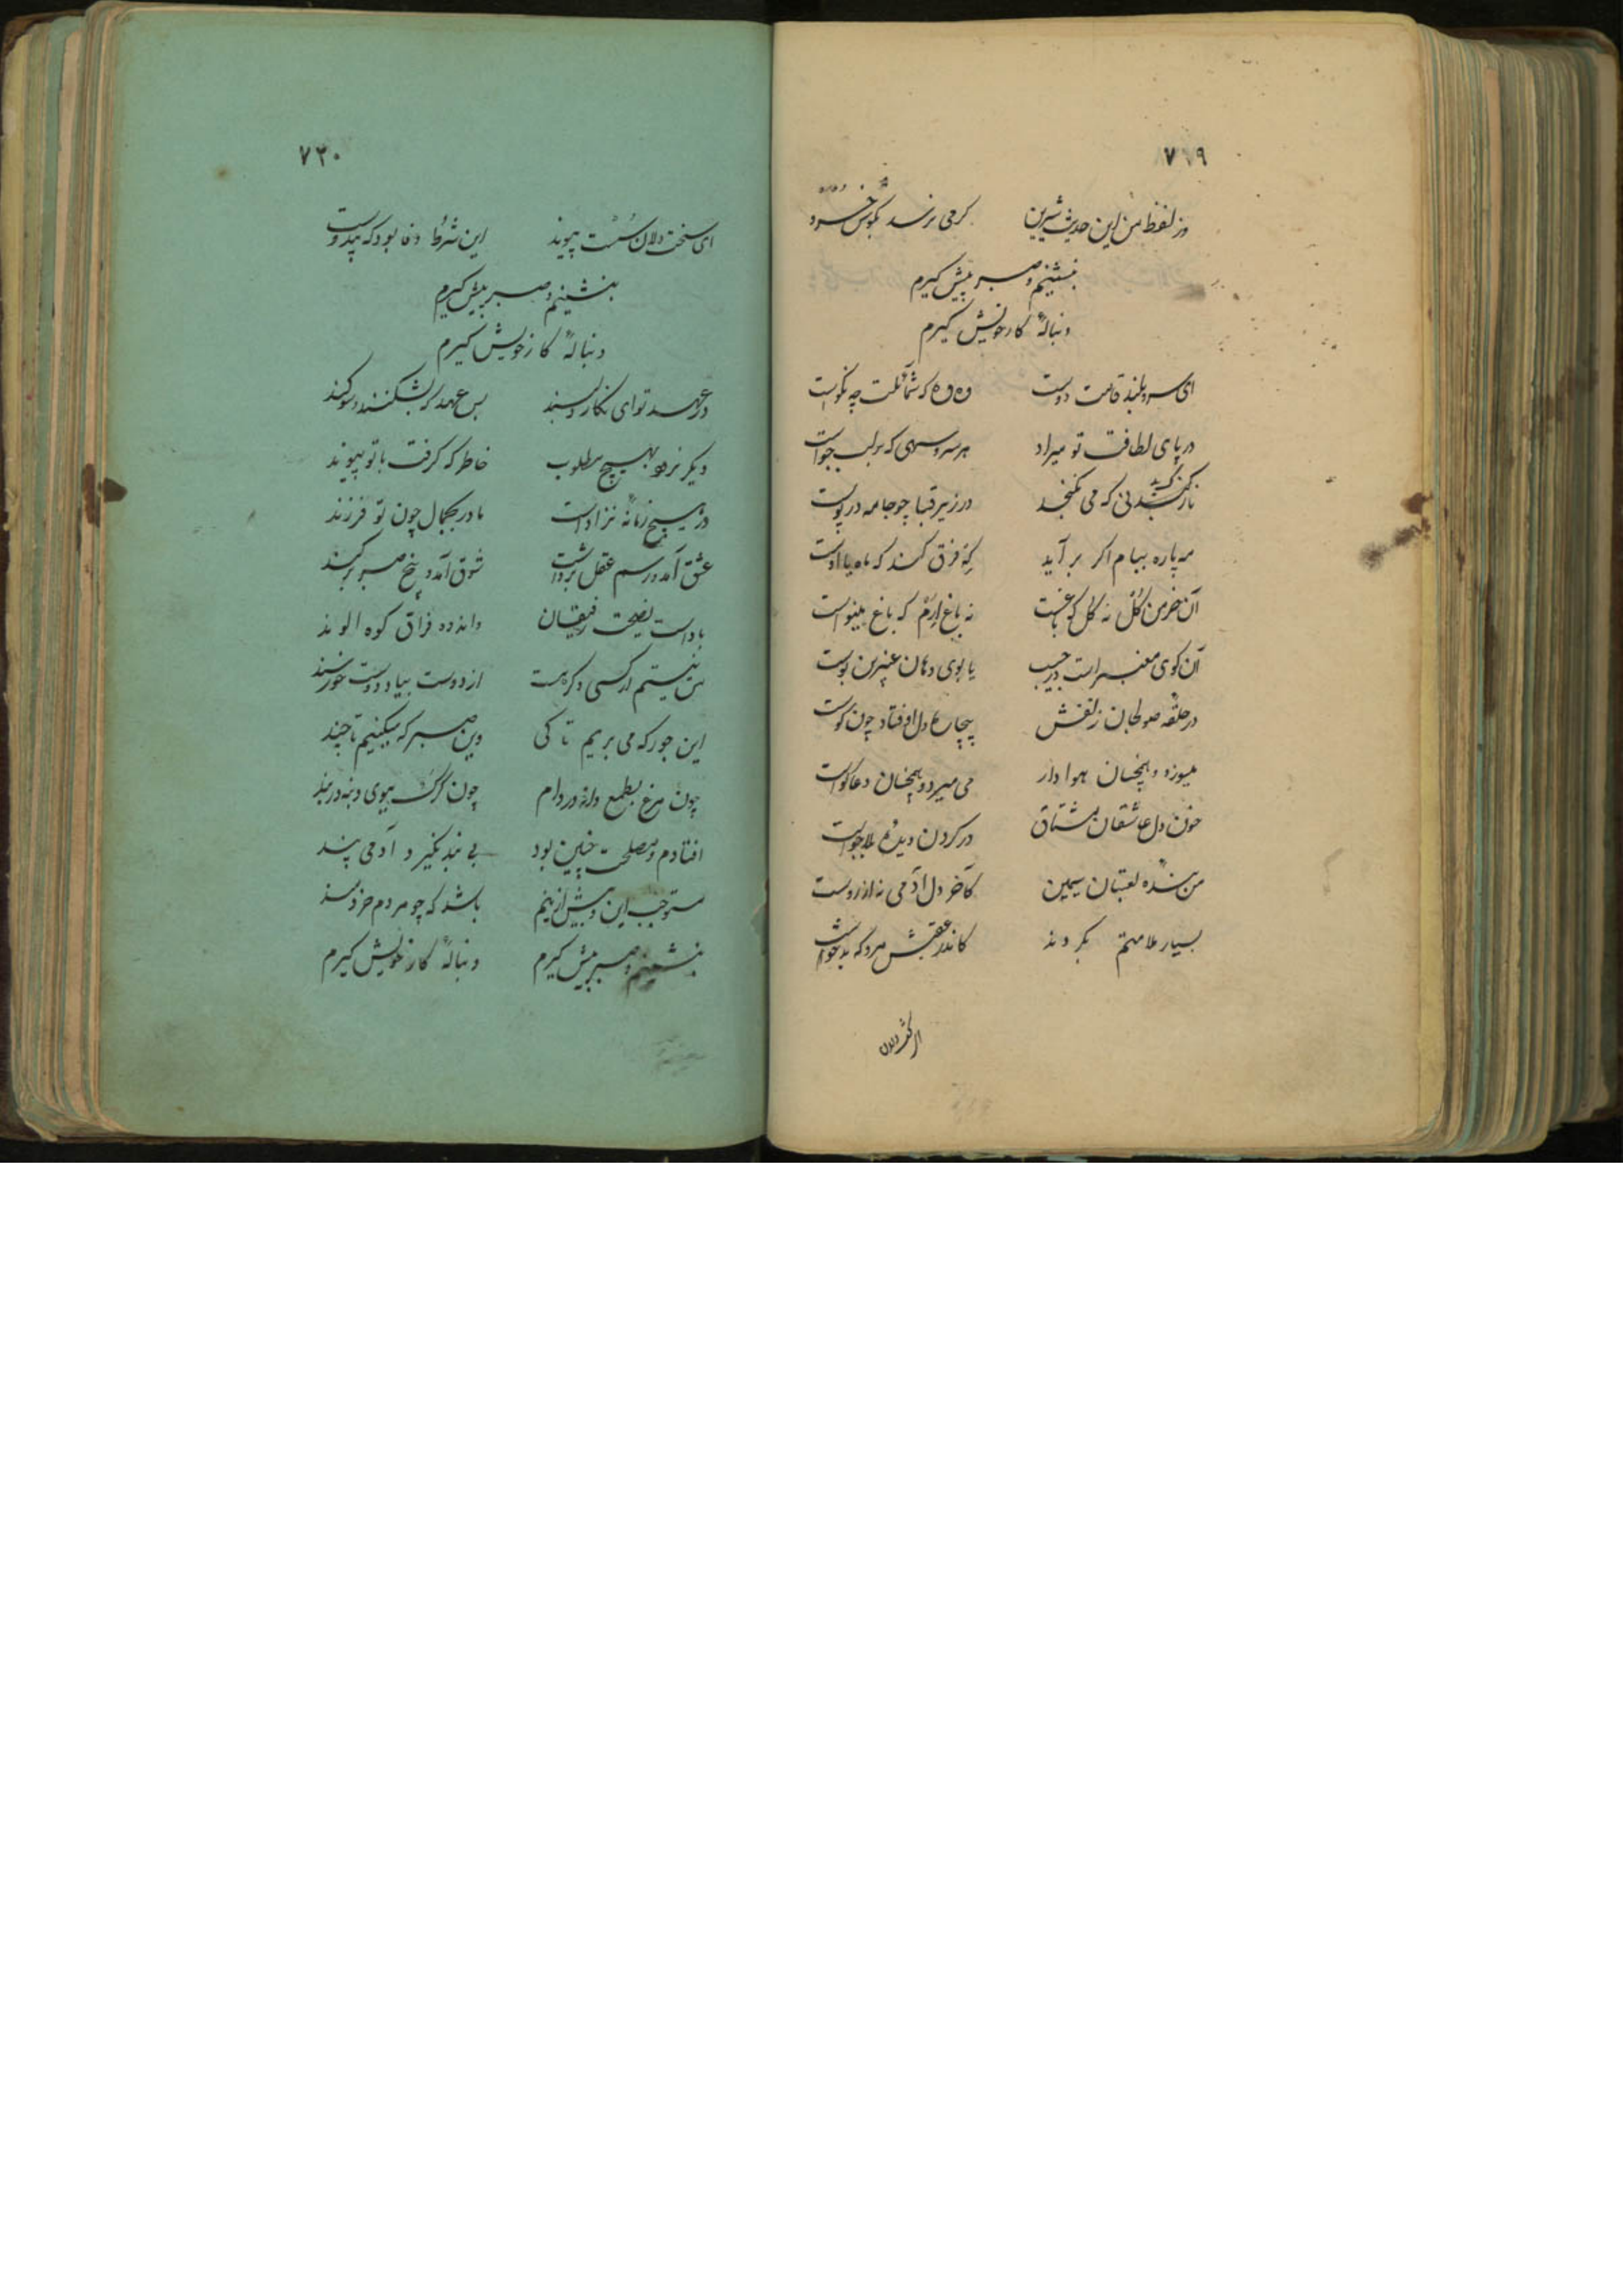 ٧١٩
وز لفظ من این حدیث شیرین گر می نرسد بگوش خسرو
بنشینم و صبر پیش گیرم
دنباله کار خویش گیرم
ای سرو بلند قامت دوست وه وه که شمائلت چه نکوست
در پای لطافت تو میراد هر سرو سهی که بر لب جوست
نازک بدنی که می نگنجد در زیر قبا چو جامه در پوست
مه پاره ببام اگر بر آید که فرق کند که ماه یا اوست
آن خرمن گل نه گل که باغست نه باغ ارم که باغ مینوست
آن گوی معنبر است در جیب یا بوی دهان عنبرین بوست
در حلقه صولجان زلفش بیچاره دل اوفتاده چون گوست
میسوزد و همچنان هوادار می میرد و همچنان دعاگوست
خون دل عاشقان مشتاق در گردن دیده بلاجوست
من بنده لعبتان سیمین کآخر دل آدمی نه از روست
بسیار ملامتم بکردند کاندر عقبش مرو که بدخوست
ای سخت دلان
٧٢٠
ای سخت دلان سست پیوند این شرط وفا بود که بیدوست
بنشینم و صبر پیش گیرم
دنباله کار خویش گیرم
در عهد تو ای نگار دلبند بس عهد که بشکنند و سوگند
دیگر نرود بهیچ مطلوب خاطر که گرفت با تو پیوند
در هیچ زمانه نزاداست مادر بجمال چون تو فرزند
عشق آمد و رسم عقل برداشت شوق آمد و بیخ صبر بر کند
باداست نصیحت رفیقان واندوه فراق کوه الوند
من نیستم ار کسی دگر هست از دوست بیاد دوست خورسند
این جور که می بریم تا کی وین صبر که میکنیم تا چند
چون مرغ بطمع دانه در دام چون گرگ ببوی دنبه در بند
افتادم و مصلحت چنین بود بی بند نگیرد آدمی پند
مستوجب این و بیش ازینم باشد که چو مردم خردمند
بنشینم و صبر پیش گیرم دنباله کار خویش گیرم